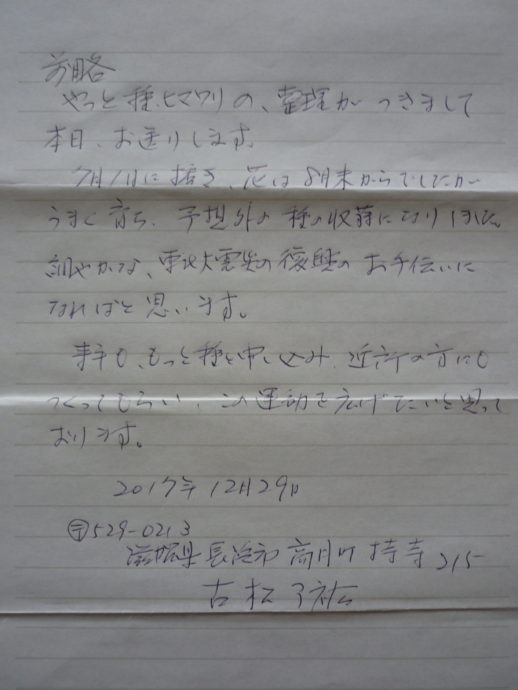 前略
やっと種ヒマワリの、整理がつきまして
本日、お送りします。
7月1日に播き、花は8月末からでしたが
うまく育ち、予想外の種の収穫になりました。
細やかな、東北大震災の復興のお手伝いに
なればと思います。
来年も、もっと種を申し込み、近所の方にも
つくってもらい、この運動を広げたいと思って
おります。
2017年12月29日
〒529-0213
滋賀県長浜市高月町持寺215
古松 了祐